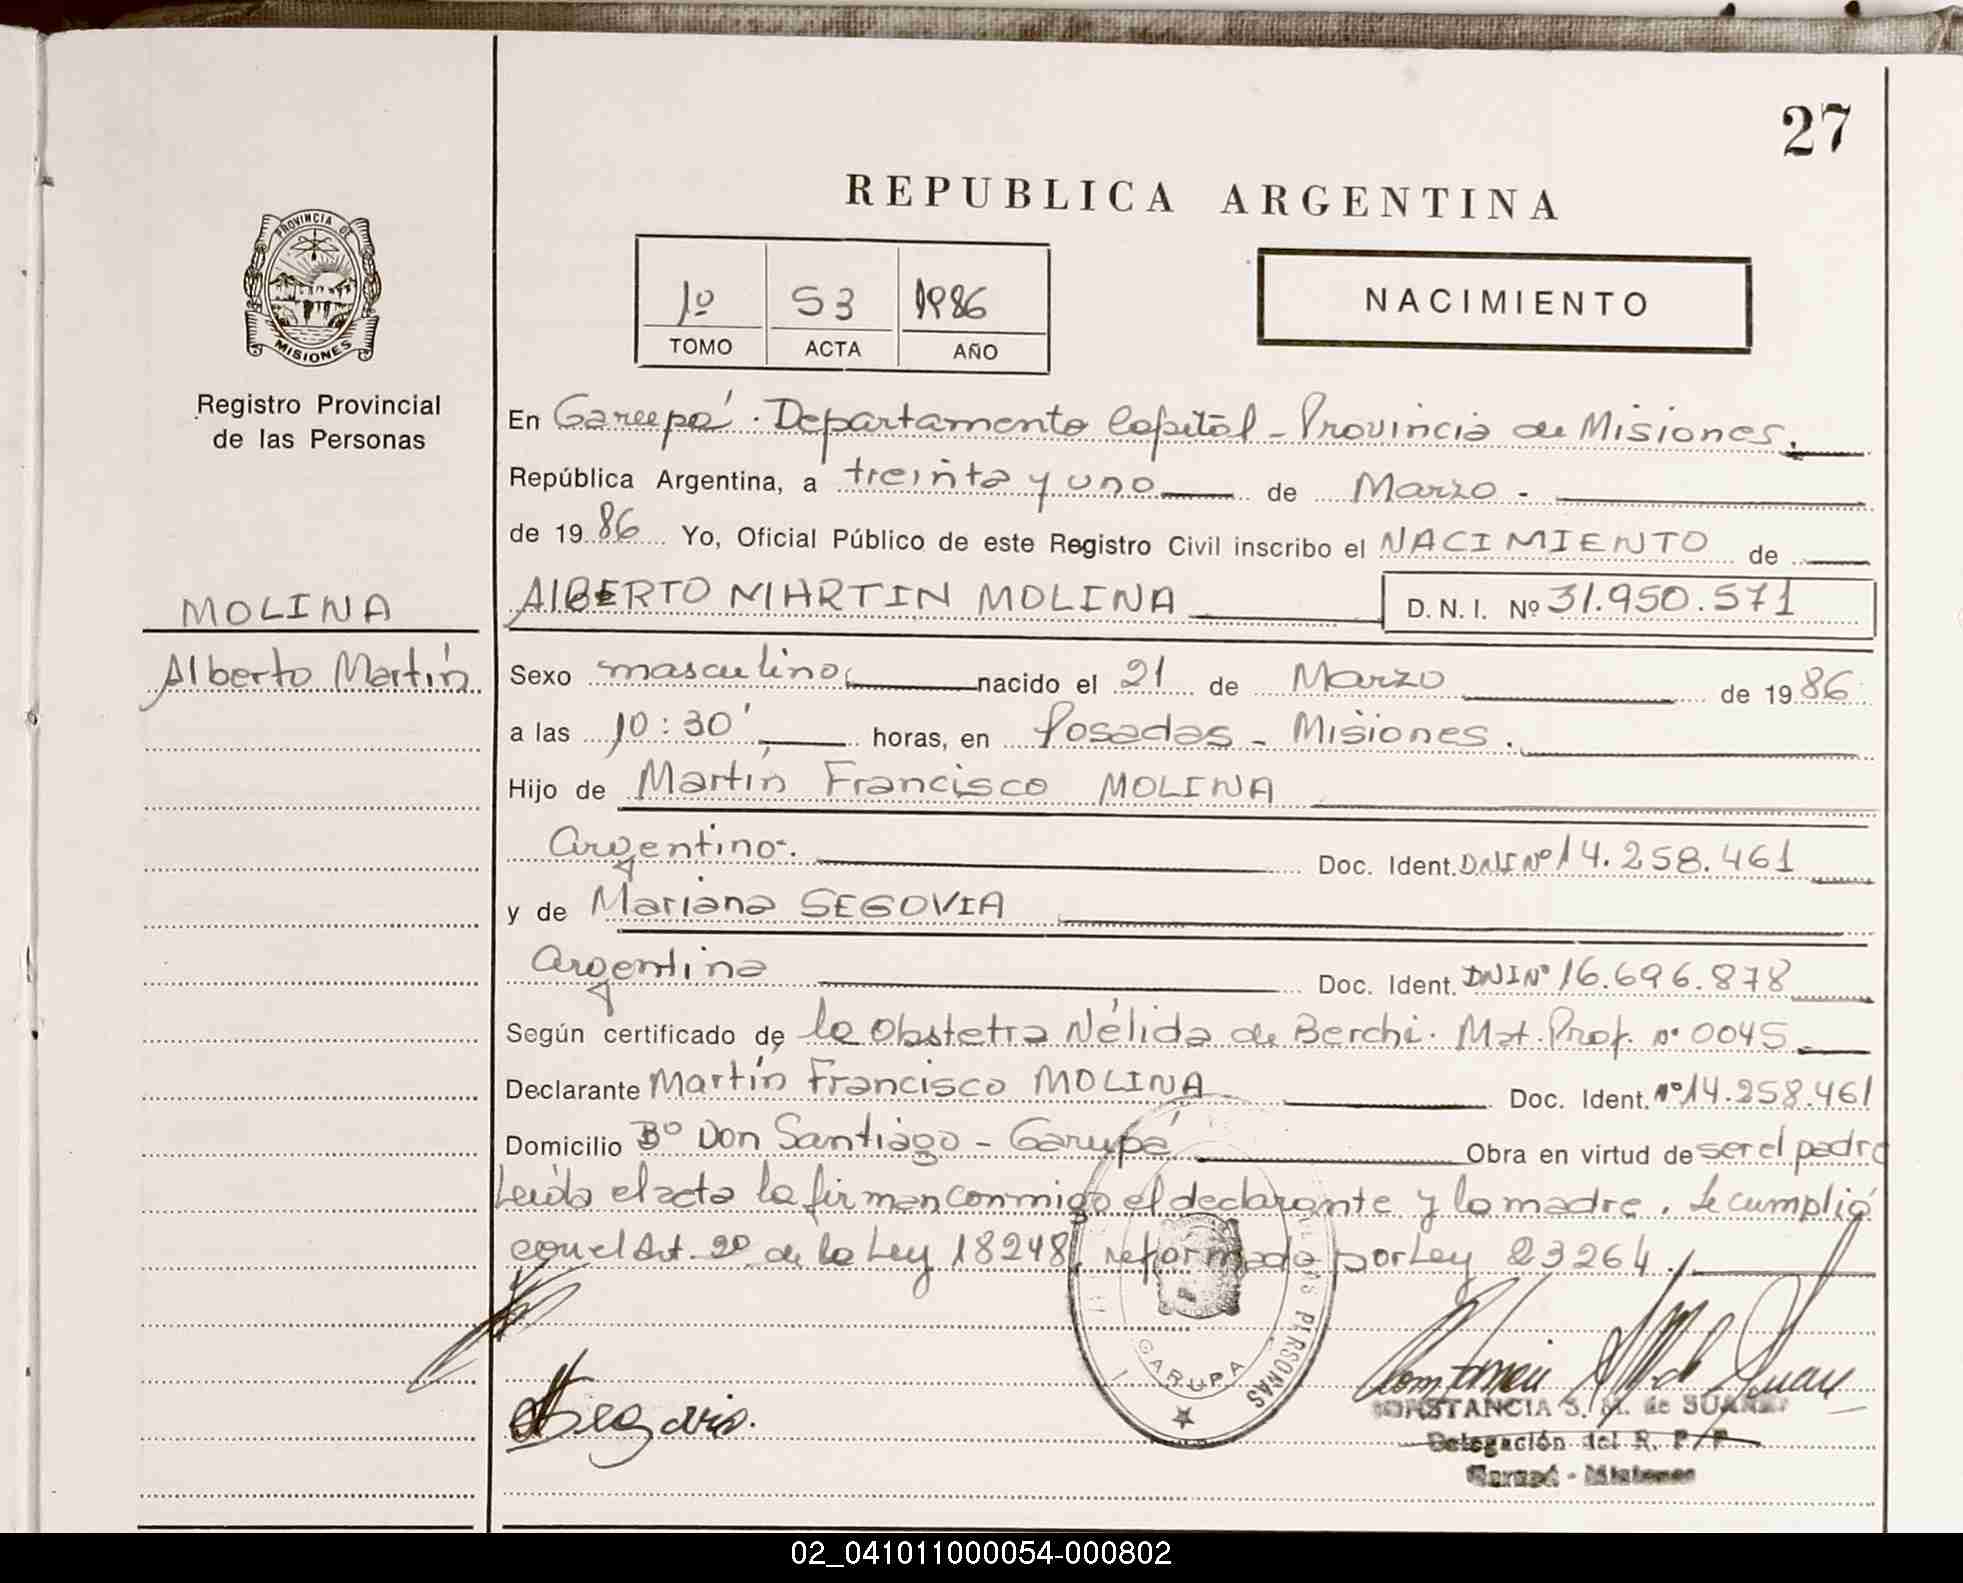 27
REPUBLICA ARGENTINA
PROVINCIA DE
MISIONES
Registro Provincial
de las Personas
1º 53 1986
TOMO ACTA AÑO
NACIMIENTO
En Garupá. Departamento Capital - Provincia de Misiones.
República Argentina, a treinta y uno de Marzo -
de 1986 Yo, Oficial Público de este Registro Civil inscribo el NACIMIENTO de
MOLINA
Alberto Martín
AlBERTO MARTIN MOLINA D.N.I. Nº 31.950.571
Sexo masculino nacido el 21 de Marzo de 1986
a las 10:30' horas, en Posadas - Misiones.
Hijo de Martín Francisco MOLINA
Argentino-. Doc. Ident. DNI Nº 14.258.461
y de Mariana SEGOVIA
Argentina Doc. Ident. DNI Nº 16.696.878
Según certificado de la Obstetra Nélida de Berchi. Mat. Prof. nº 0045
Declarante Martín Francisco MOLINA Doc. Ident. nº 14.258.461
Domicilio Bº Don Santiago - Garupá Obra en virtud de ser el padre
Leída el acta la firman conmigo el declarante y la madre. Se cumplió
con el Art. 2º de la Ley 18248, reformada por Ley 23264.
PERSONAS
GARUPA
Segovia.
CONSTANCIA S. M. de SUAREZ
Delegación del R. P. P.
Garupá - Misiones
02_041011000054-000802